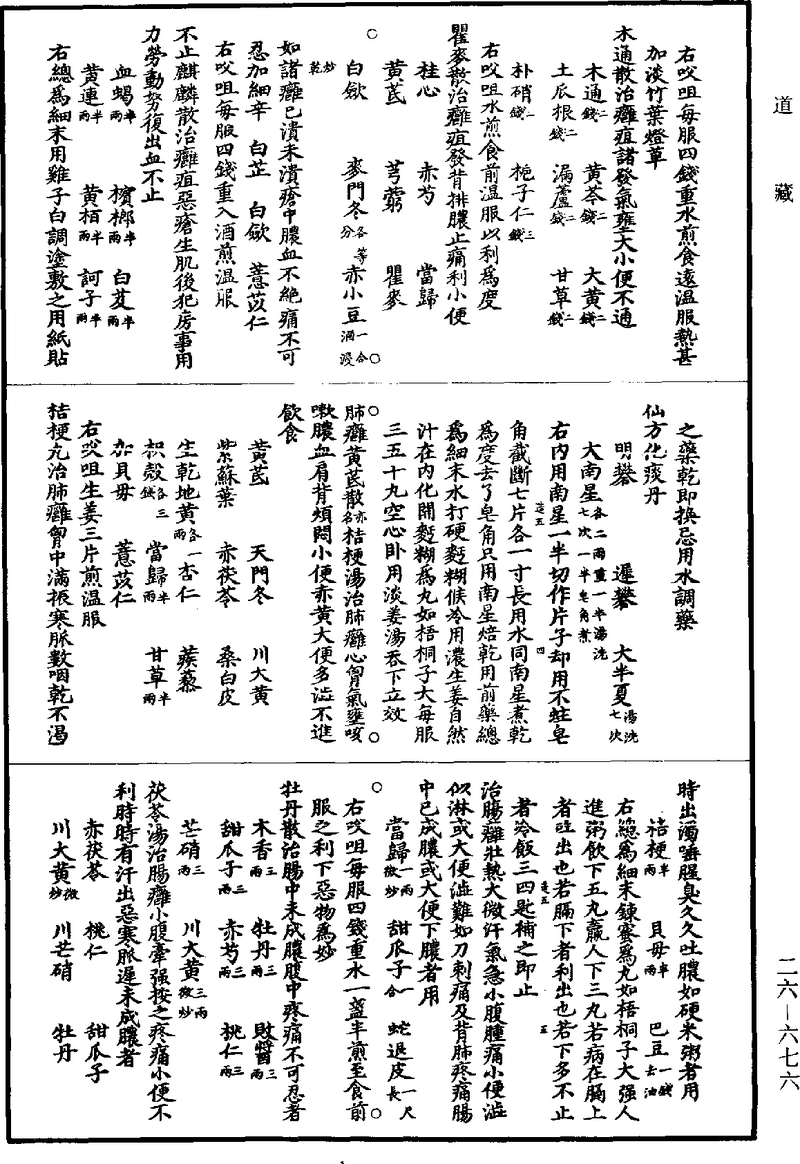 道藏
右㕮咀每服四錢重水煎食遠溫服熱甚
加淡竹葉燈草
木通散治癰疽諸發氣壅大小便不通
木通二錢 黃芩二錢 大黃二錢
土瓜根二錢 漏蘆二錢 甘草二錢
朴硝一錢 梔子仁三錢
右㕮咀水煎食前溫服以利為度
瞿麥散治癰疽發背排膿止痛利小便
桂心 赤芍 當歸
黃芪 芎藭 瞿麥
白歛 麥門冬各等分 赤小豆一合酒浸炒乾
如諸癰已潰未潰瘡中膿血不絶痛不可
忍加細辛 白芷 白歛 薏苡仁
右㕮咀每服四錢重入酒煎溫服
不止麒麟散治癰疽惡瘡生肌後犯房事用
力勞動努復出血不止
血竭半兩 檳榔半兩 白芨半兩
黃連半兩 黃栢半兩 訶子半兩
右總為細末用雞子白調塗敷之用紙貼
之藥乾即換忌用水調藥
仙方化痰丹
明礬 遲礬 大半夏湯洗七次
大南星各二兩重一半湯洗七次一半皂角煮
右內用南星一半切作片子却用不蛀皂
角截斷七片各一寸長用水同南星煮乾
為度去了皂角只用南星焙乾用前藥總
為細末水打硬麪糊候冷用濃生姜自然
汁在內化開麪糊為丸如梧桐子大每服
三五十丸空心卧用淡姜湯吞下立效
肺癰黃芪散亦名桔梗湯治肺癰心胷氣壅咳
嗽膿血肩背煩悶小便赤黃大便多澁不進
飲食
黃芪 天門冬 川大黃
紫蘇葉 赤茯苓 桑白皮
生乾地黃各一兩 杏仁 蒺藜
枳殼各三錢 當歸半兩 甘草半兩
加貝母 薏苡仁
右㕮咀生姜三片煎溫服
桔梗丸治肺癰胷中滿振寒脈數咽乾不渴
時出濁唾腥臭久久吐膿如硬米粥者用
桔梗半兩 貝母半兩 巴豆一錢去油
右總為細末鍊蜜為丸如梧桐子大强人
進粥飲下五丸羸人下三丸若病在膈上
者吐出也若膈下者利出也若下多不止
者冷飯三四匙補之即止
治腸癰壯熱大微汗氣急小腹腫痛小便澁
似淋或大便澁難如刀刺痛及背肺疼痛腸
中已成膿或大便下膿者用
當歸一兩微炒 甜瓜子一合 蛇退皮一尺長
右㕮咀每服四錢重水一盞半煎至食前
服之利下惡物為妙
牡丹散治腸中未成膿腹中疼痛不可忍者
木香三兩 牡丹三兩 敗醬三兩
甜瓜子三兩 赤芍三兩 桃仁三兩
芒硝三兩 川大黃三兩微炒
茯苓湯治腸癰小腹牽强按之疼痛小便不
利時時有汗出惡寒脈遲未成膿者
赤茯苓 桃仁 甜瓜子
川大黃微炒 川芒硝 牡丹
二六—六七六